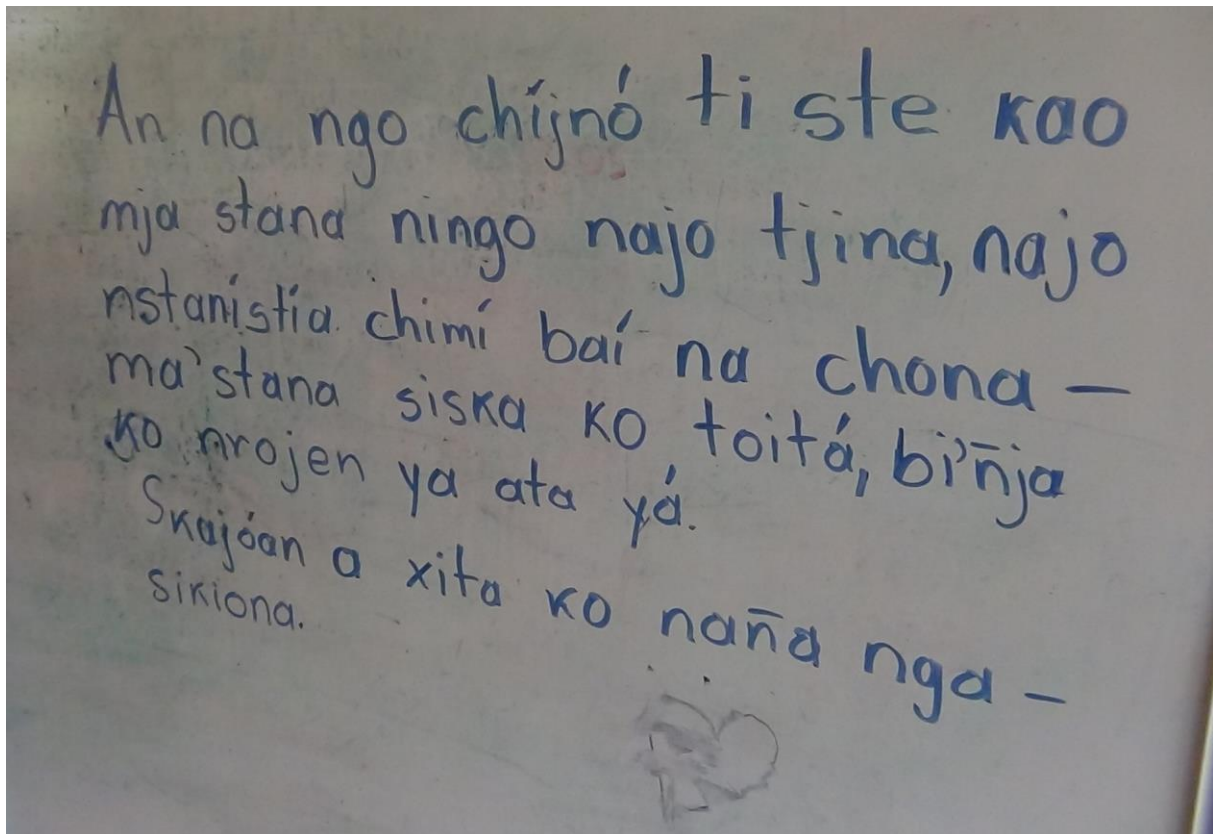 An na ngo chíjnó ti ste kao
mja stana ningo najo tjina, najo
nstanístía chimí baí na chona -
ma'stana siska ko toitá, bi'ñja
ko nrojen ya ata yá.
Skajóan a xita ko naña nga -
sikiona.